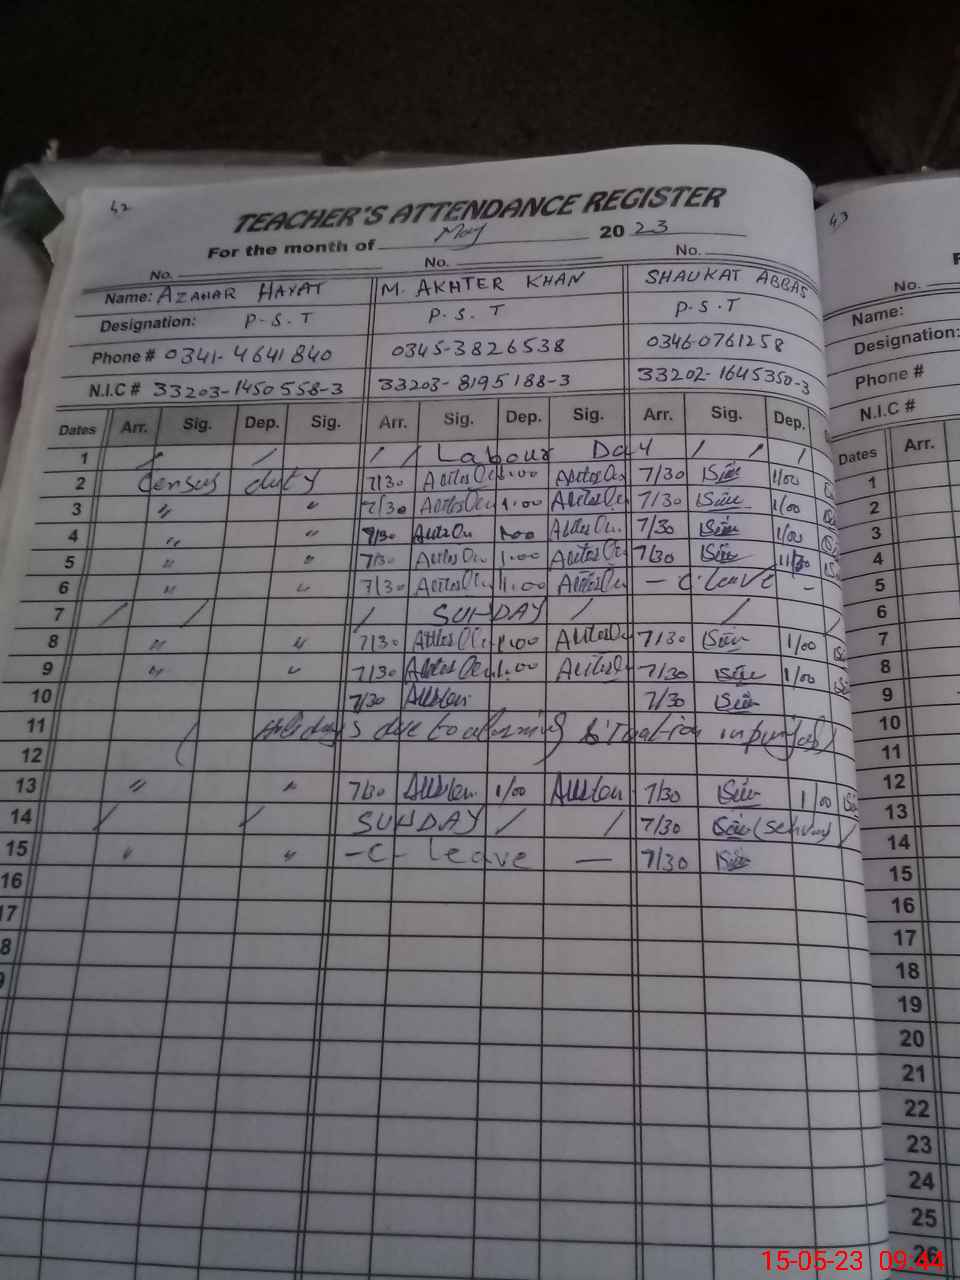 42
TEACHER'S ATTENDANCE REGISTER
For the month of May 2023
No. No. No.
Name: AZAHAR HAYAT M. AKHTER KHAN SHAUKAT ABBAS
Designation: P.S.T P.S.T P.S.T
Phone # 0341-4641840 0345-3826538 0346-0761258
N.I.C # 33203-1450558-3 33203-8195188-3 33202-1645350-3
Dates Arr. Sig. Dep. Sig. Arr. Sig. Dep. Sig. Arr. Sig. Dep.
1 / / / / Labour Day / / /
2 Census duty 7/30 1.00 7/30 1/00
3 " " 7/30 1.00 7/30 1/00
4 " " 7/30 1.00 7/30 1/00
5 " " 7/30 1.00 7/30
6 " " 7/30 1.00 - C. leave -
7 / / / SUNDAY / /
8 " " 7/30 1.00 7/30 1/00
9 " " 7/30 1.00 7/30 1/00
10 7/30 7/30
11 ( Holidays due to alarming situation in punjab )
12
13 " " 7/30 1/00 7/30 1/00
14 / / SUNDAY / / 7/30
15 " " - C - leave - 7/30
16
17
8
9
43
No.
Name:
Designation:
Phone #
N.I.C #
Dates Arr.
1
2
3
4
5
6
7
8
9
10
11
12
13
14
15
16
17
18
19
20
21
22
23
24
25
26
15-05-23 09:44